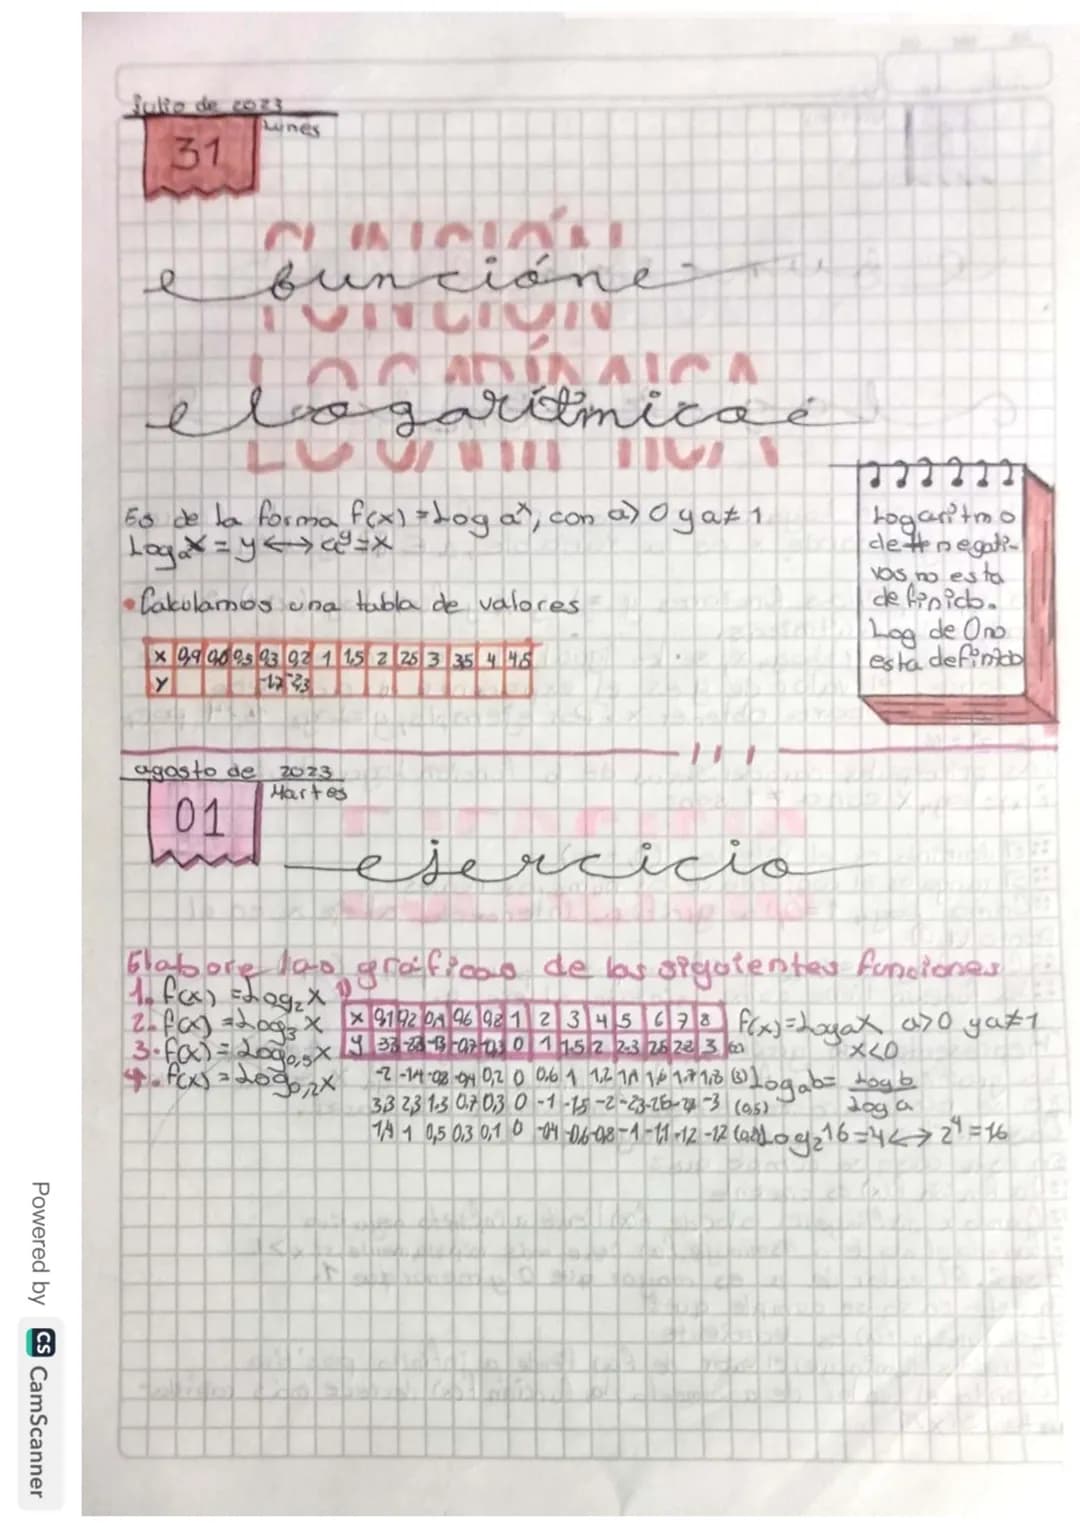 julio de 2023
Lunes
31
FUNCIÓN
función
LOGARÍTMICA
logarítmica
Es de la forma f(x) = Log aˣ, con a>0 y a≠1
Logₐx = y ↔ aʸ=x
• Calculamos una tabla de valores
Logaritmo
de # negati-
vos no esta
definido.
Log de 0 no
esta definido
x 0,9 0,3 0,2 1 1,5 2 2,5 3 3,5 4 4,5
y -1,7 -2,3
agosto de 2023
Martes
01
ejercicio
Elabore las graficas de las siguientes funciones
1. f(x) = Log₂x
2. f(x) = Log₃x
3. f(x) = Log₀,₅x
4. f(x) = Log₀,₂x
1)
x 0,1 0,2 0,4 0,6 0,8 1 2 3 4 5 6 7 8
y 3,3 -2,3 -1,3 -0,7 -0,3 0 1 1.5 2 2.3 2,6 2,8 3 (2)
-2 -1,4 -0,8 -0,4 0,2 0 0,6 1 1,2 1,4 1,6 1,7 1,8 (3)
3,3 2,3 1.3 0.7 0,3 0 -1 -1,5 -2 -2,3 -2,6 -2,8 -3 (0,5)
1,4 1 0,5 0.3 0,1 0 -0,4 -0,6 -0,8 -1 -1,1 -1,2 -1,2 (0,2)
f(x)=Logax a>0 y a≠1
x<0
Logab= Log b
Log a
Log₂16=4 ↔ 2⁴=16
Powered by CS CamScanner